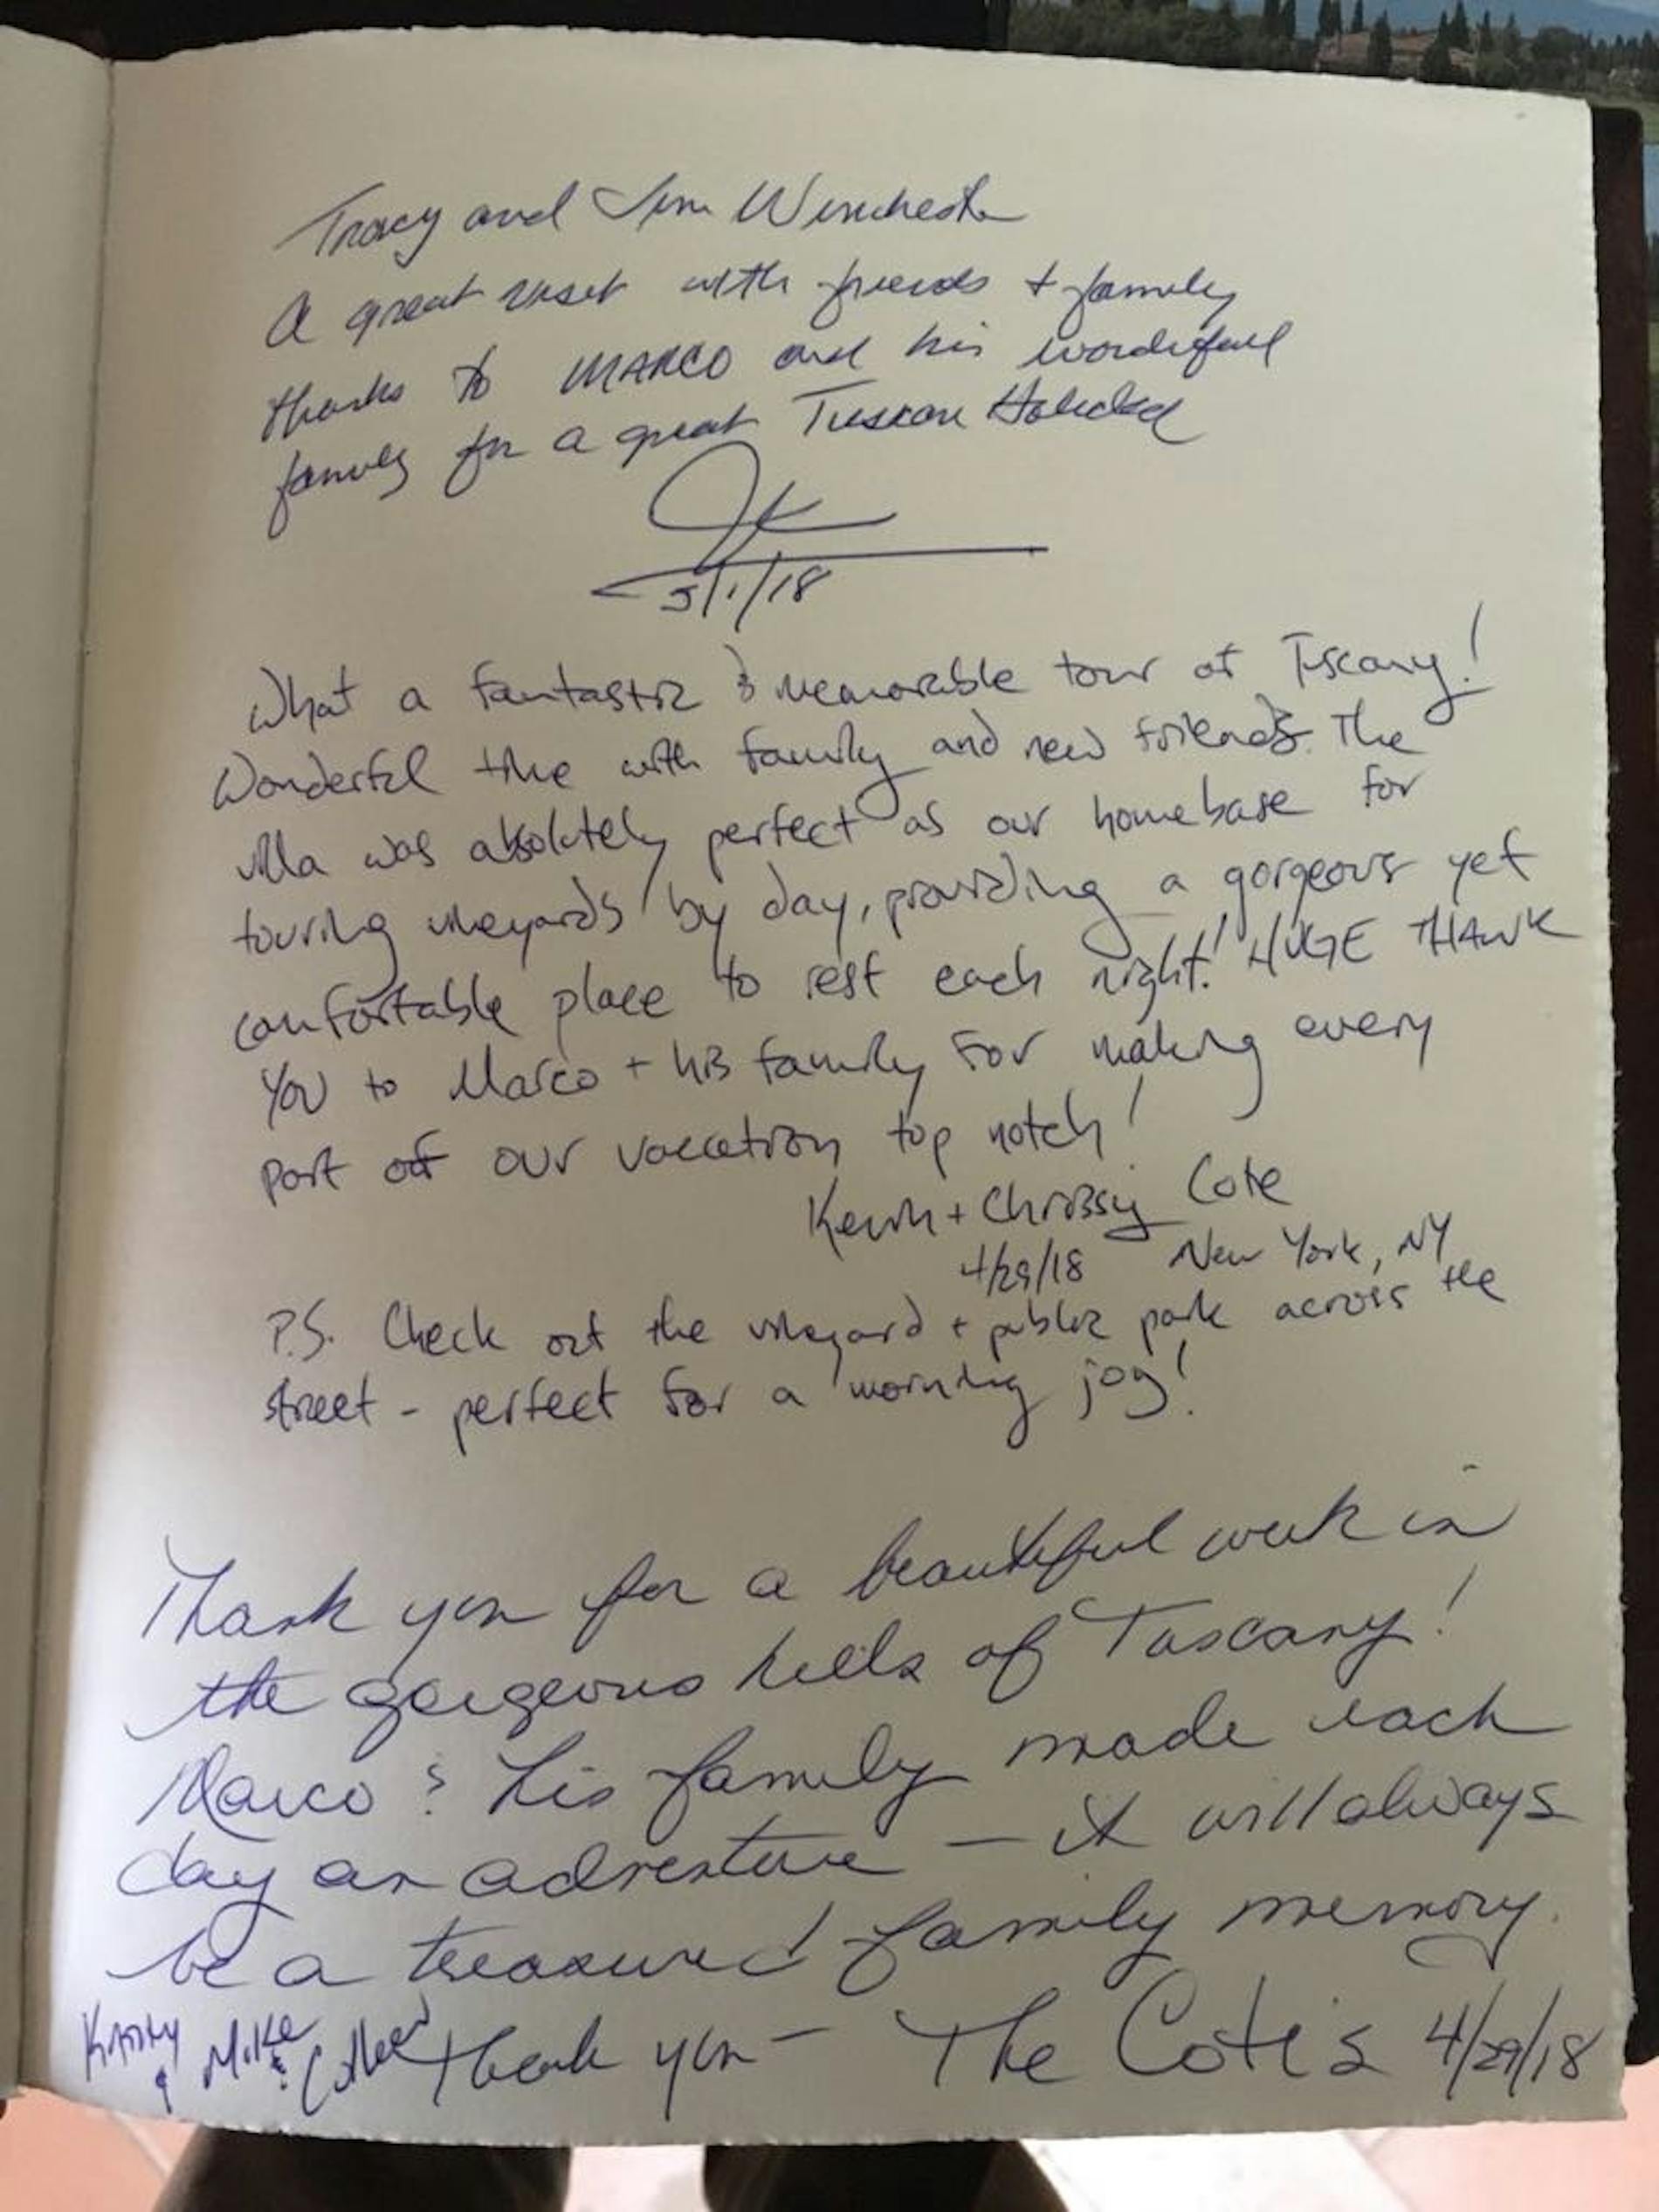 Tracy and Jim Winchester
A great visit with friends + family
thanks to MARCO and his wonderful
family for a great Tuscan Holiday
5/1/18
What a fantastic & memorable tour of Tuscany!
Wonderful time with family and new friends. The
villa was absolutely perfect as our homebase for
touring vineyards by day, providing a gorgeous yet
comfortable place to rest each night! HUGE THANK
YOU to Marco + his family for making every
part of our vacation top notch!
Kevin + Chrissy Cote
4/29/18 New York, NY
P.S. Check out the vineyard + public park across the
street - perfect for a morning jog!
Thank you for a beautiful week in
the gorgeous hills of Tuscany!
Marco & his family made each
day an adventure — it will always
be a treasured family memory.
Mike & Thank you — The Cote's 4/29/18